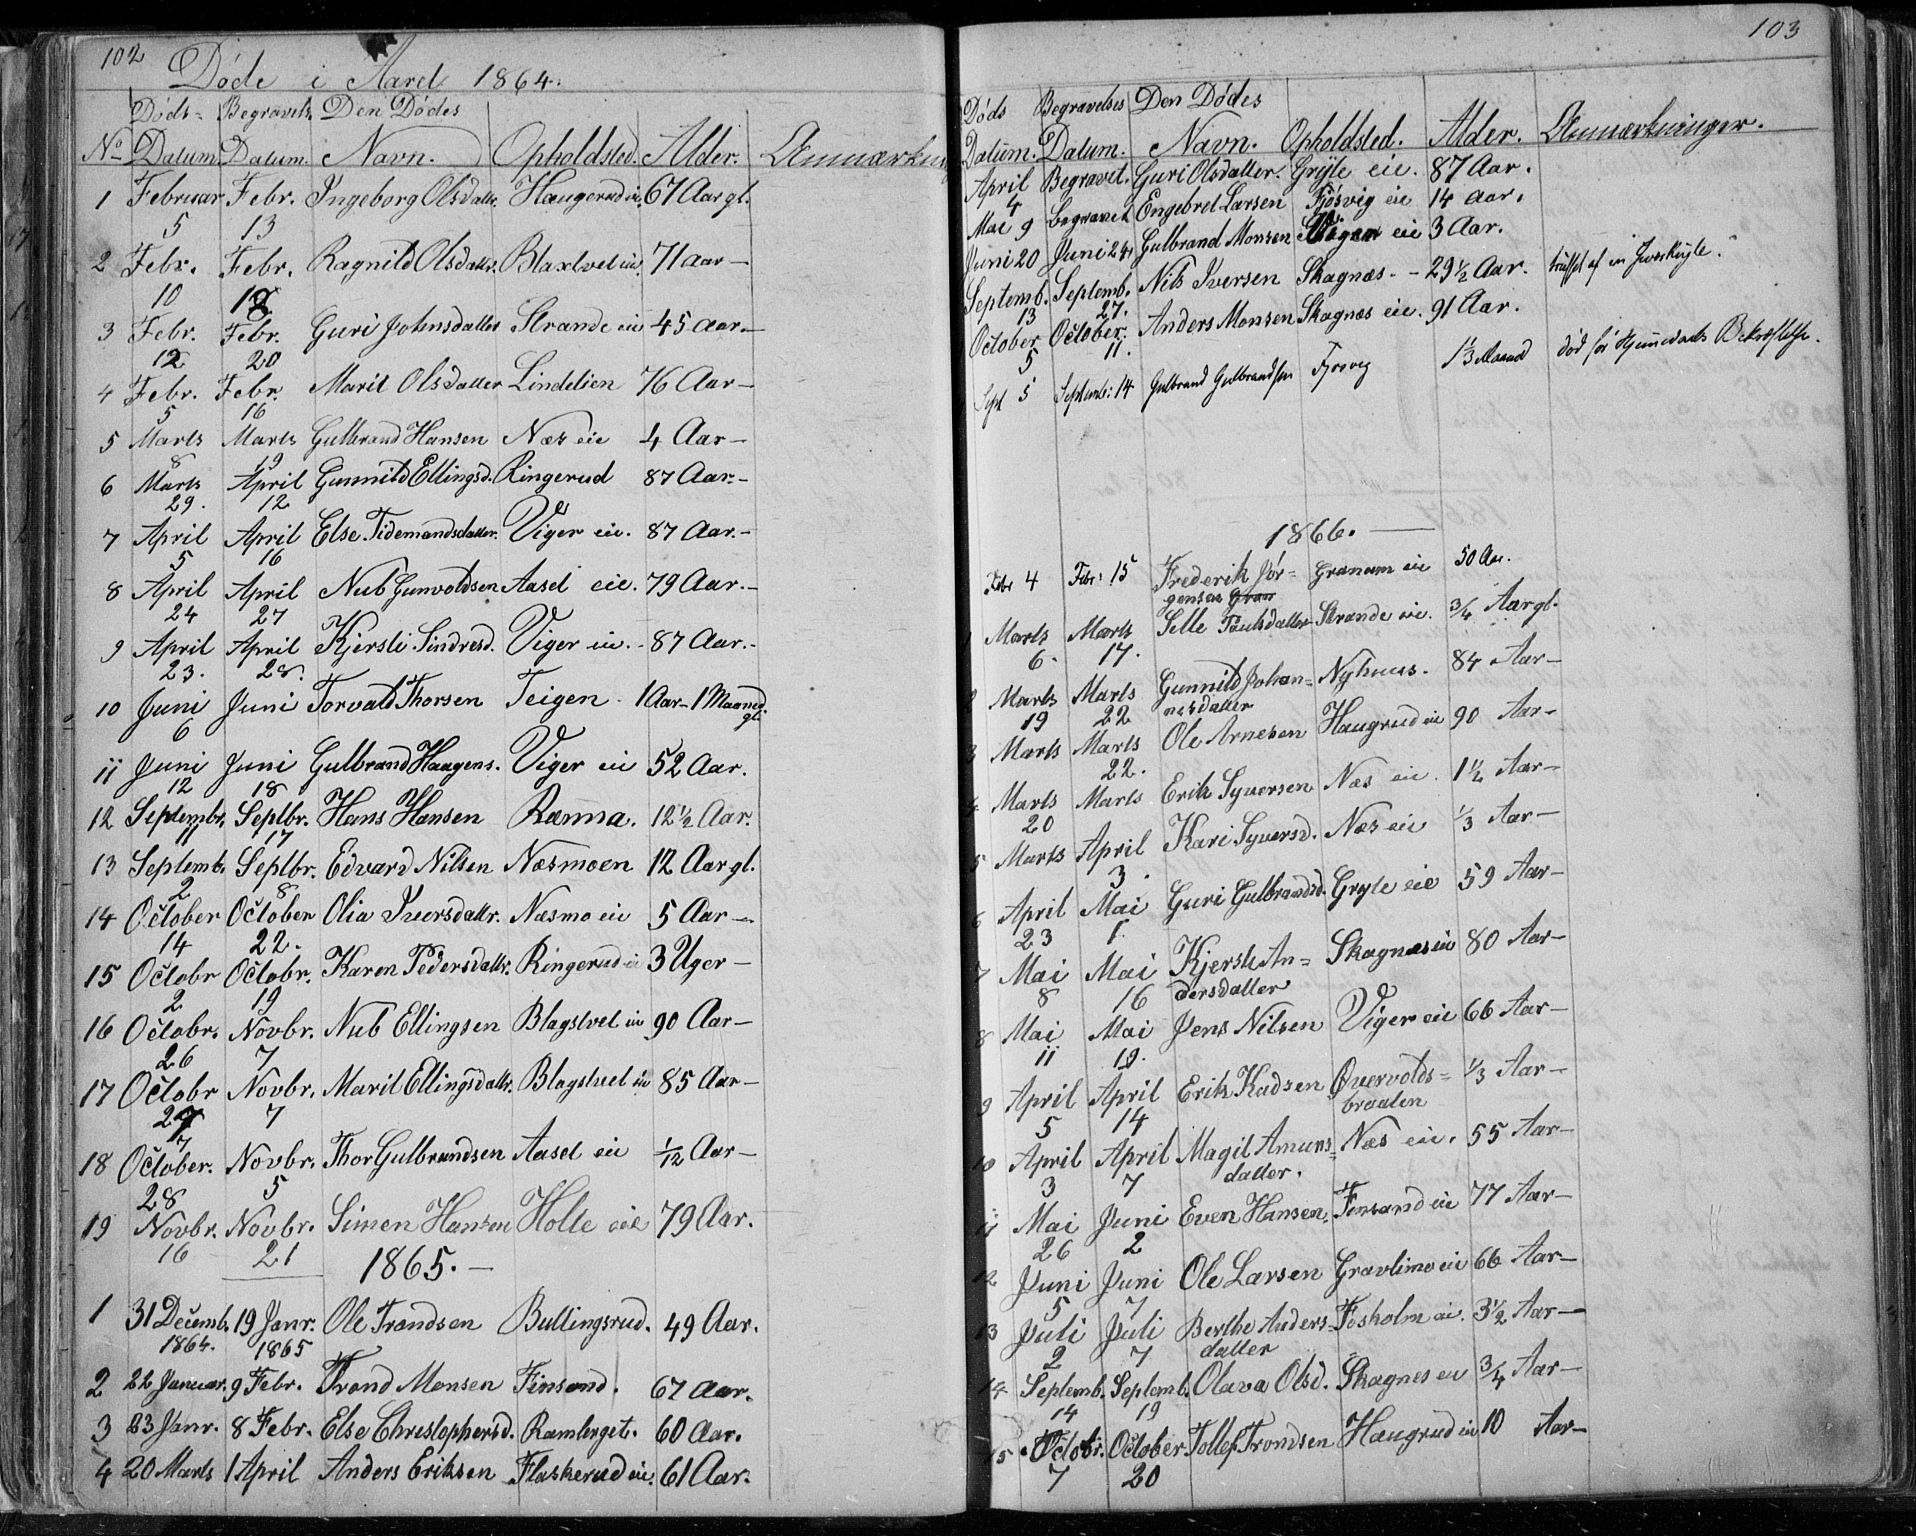 102
Døde i Aaret 1864.
Døds- Begravels. Den Dødes
No Datum. Datum. Navn. Opholdsted. Alder. Anmærkning
1 Februar Febr. Ingeborg Olsdattr. Haugerud eie. 67 Aar gl.
5 13
2 Febr. Febr. Ragnild Olsdattr. Blaxtvet eie. 71 aar —
10 18
3 Febr. Febr. Guri Johnsdatter Strande eie 45 Aar. —
12 20
4 Febr. Febr. Marit Olsdatter Lindelien 76 Aar —
5 16
5 Marts Marts Gulbrand Hansen Næs eie 4 Aar —
8 19
6 Marts April Gunnild Ellingsd. Ringerud 87 Aar. —
29. 12
7 April April Else Tidemandsdatter. Viger eie. 87 Aar. —
5 16
8 April April Nub Gunvoldsen Aasel eie. 79 Aar. —
24 27
9 April April Kjersti Sindresd. Viger eie. - 87 Aar. -
23. 28.
10 Juni Juni Torvald Thorsen Teigen - 1 Aar - 1 Maaned. gl.
6
11 Juni Juni Gulbrand Haagens. Viger eie 52 Aar.
12 18
12 Septembr. Septbr. Hans Hansen Ramna. 12½ Aar.
11 17
13 Septemb. Septbr. Edvard Nilsen Næsmoen 12 Aar gl.
2 8
14 October October Olia Iversdattr. Næsmo eie 5 Aar —
14 22.
15 Octobr Octobr. Karen Pedersdattr. Ringerud eie 3 Uger —
2 19
16 Octobr. Novbr. Nub Ellingsen Blagstvet eie 90 Aar —
26 7
17 Octobr Novbr. Marit Ellingsdattr. Blagstvet eie 85 Aar —
27 7
7
18 October. Novbr. Thor Gulbrandsen Aasel eie 1/12 Aar —
28 5
19 Novbr. Novbr. Simen Hansen Holte eie 79 Aar.
16 21
1865. —
1 31 Decemb. 19 Janr. Ole Trondsen Bullingsrud. 49 Aar.
1864. 1865
2 22 Januar. 9 Febr. Trond Monsen Finsand. 67 Aar.
3 23 Janr. 8 Febr. Else Chrestophersd. Ramberget. 60 Aar.
4 20 Marts 1 April Anders Eriksen Flaskerud eie. 61 Aar.
103
Døds Begravelses Den Dødes
Datum. Datum. Navn. Opholdsted. Alder. Anmærkninger.
April Begravet. Guri Olsdatter. Gryte eie. 87 Aar.
4
Mai 9 begravet Engebret Larsen Fjøsvig eie 14 Aar.
Juni 20 Juni 24 Gulbrand Monsen eie 3 Aar.
Septemb. Septemb. Nils Iversen Skagnæs. - 29½ Aar. truffet af en
13 27.
October October. Anders Monsen Skagnæs eie. 91 Aar.
5 11.
Sept 5 Septemb: 14 Gulbrand Gulbrandsen Fjøsvig 1⅓ Maaned død før Hjemmedaab Bekræftelse.
1866. —
Febr 4 Febr: 15 Frederik Jør- Granum eie 50 Aar.
gensen
1 Marts Marts Selle Paulsdatter Strande eie. ¾ Aar gl.
6. 17.
2 Marts Marts Gunnild Johan- Nyhuus. 84 Aar —
19 22 nesdatter
3 Marts Marts Ole Arnesen Haugrud eie 90 Aar —
22.
4 Marts Marts Erik Syversen Næs eie. 1½ Aar —
20
5 Marts April Kari Syversd. Næs eie ⅓ Aar —
3.
6 April Mai Guri Gulbrandsd. Gryte eie 59 Aar —
23 1.
7 Mai Mai Kjersti An- Skagnæs eie 80 Aar —
8 16 dersdatter
8 Mai Mai Jens Nilsen Viger eie 66 Aar —
11 19.
9 April April Erik Kndsen Øvervolds- ⅓ Aar —
5 14 braaten
10 April April Magil Amuns- Næs eie. 55 Aar —
3 7 datter.
11 Mai Juni Even Hansen. Finsand eie 77 Aar —
26 2
12 Juni Juni Ole Larsen Gravlimo eie 66 Aar —
5 7
13 Juli Juli Berthe Anders- Foskolm eie. 3½ Aar —
2 7 datter
14 Septemb. Septemb. Olava Olsd. Skagnes eie ¾ Aar —
14 19
15 Octobr. October. Tollef Trondsen Haugrud eie 10 Aar —
7 20